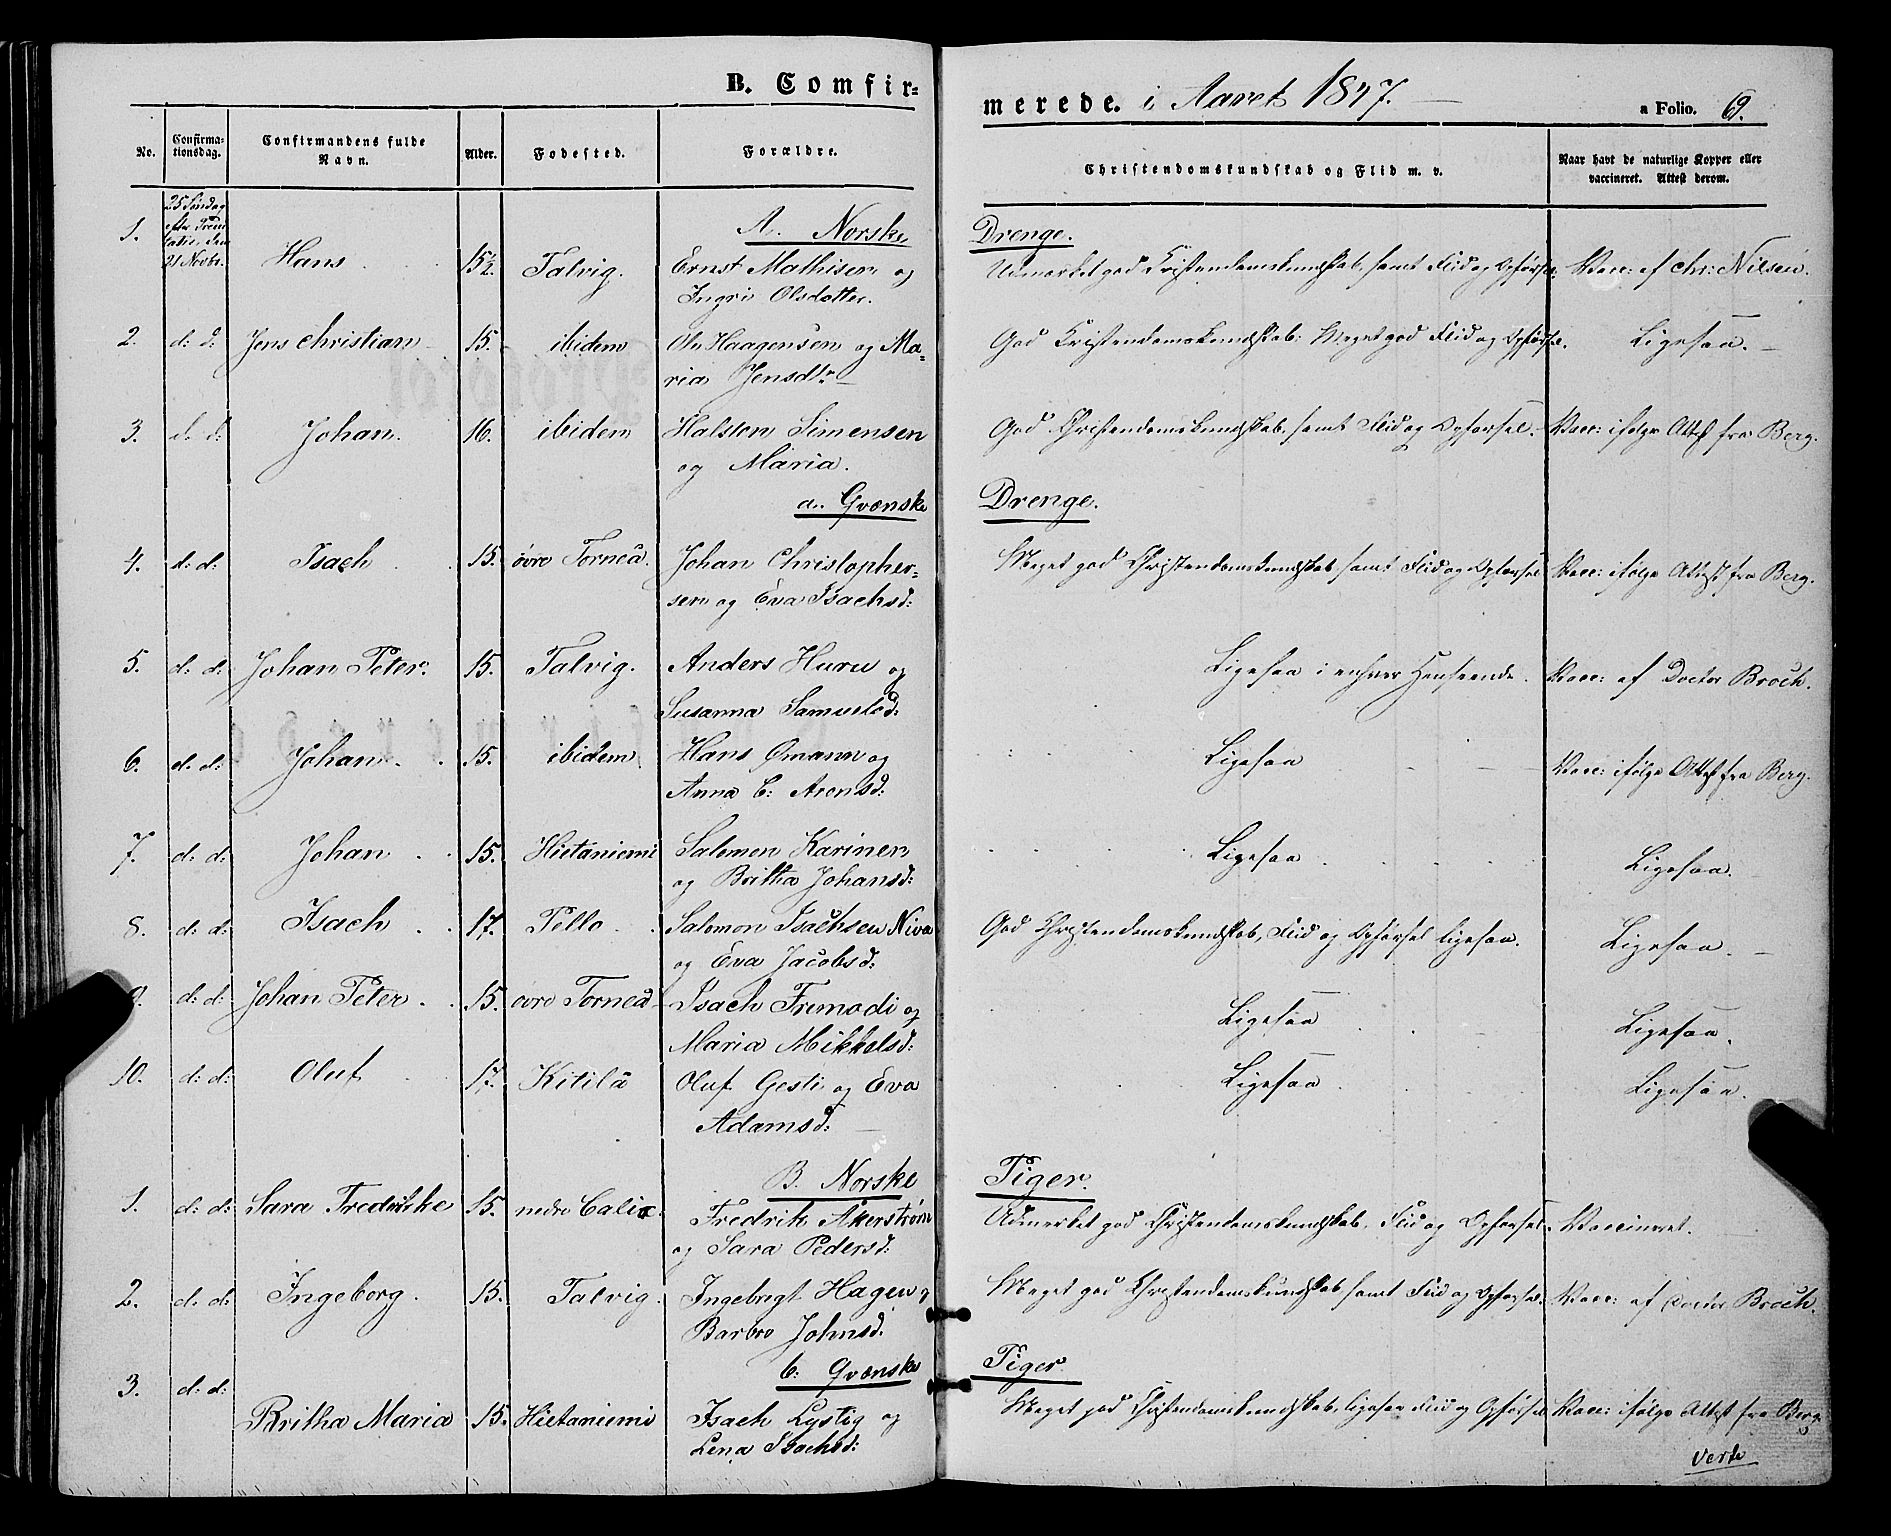 B. Comfir-
merede. i Aaret 1847.
a Folio. 69.
No.
Confirma-
tionsdag.
Confirmandens fulde
Navn.
Alder.
Fodested.
Forældre.
Christendomskundskab og Flid m. v.
Naar havt de naturlige Kopper eller
vaccineret. Attest derom.
25 Søndag
efter Trini-
tatis, den
21 Novbr.
A. Norske
Drenge.
1. Hans 15½ Talvig. Ernst Mathisen og Udmærket god Kristendomskundskab, samt Flid og Opførsel. Vacc: af Chr: Nilsen.
Ingri Olsdatter.
2. d: d: Jens Christian 15. ibidem Ole Haagensen og Ma- God Kristendomskundskab. Meget god Flid og Opførsel. Ligesaa.
ria Jensdtr
3. d: d: Johan. 16. ibidem Halsten Simensen God Christendomskundskab, samt Flid og Opførsel. Vacc: ifølge Attest fra Berg.
og Maria.
a. Qvænske Drenge.
4. d: d: Isach 15. øvre Torneå. Johan Christopher- Meget god Christendomskundskab samt Flid og Opførsel Vacc: ifølge Attest fra Berg.
sen og Eva Isachsd:
5. d: d: Johan Peter. 15. Talvig. Anders Huru og Ligesaa i enhver Henseende. Vacc: af Doctor Broch.
Susanna Samuelsd:
6. d: d: Johan. 15. ibidem Hans Ømann og Ligesaa Vacc: ifølge Attest fra Berg.
Anna C: Aronsd:
7. d: d: Johan 15. Hietaniemi Salomon Karinen Ligesaa Ligesaa.
og Britha Johansd:
8. d: d: Isach 17. Pello Salomon Isachsen Niva God Christendomskundskab, Flid og Opførsel ligesaa. Ligesaa.
og Eva Jacobsd:
9. d: d: Johan Peter 15. øvre Torneå Isach Fremodi og Ligesaa Ligesaa.
Maria Mikkelsd:
10. d: d: Oluf 17. Kitilä Oluf Gesti og Eva Ligesaa Ligesaa.
Adamsd:
B. Norske Piger.
1. d: d: Sara Fredrikke 15. nedre Calix. Fredrik Åkerstrøm Udmærket god Christendomskundskab, Flid og Opførsel. Vaccineret.
og Sara Pedersd:
2. d: d: Ingeborg. 15. Talvig. Ingebregt Hagen og Meget god Christendomskundskab samt Flid og Opførsel. Vacc: af Doctor Broch.
Barbro Johnsd:
b: Qvænske Piger
3. d: d: Britha Maria 15. Hietaniemi Isach Lystig og Meget god Christendomskundskab, ligesaa Flid og Opførsel. Vacc: ifølge Attest fra Berg
Lena Isachsd:
Verte